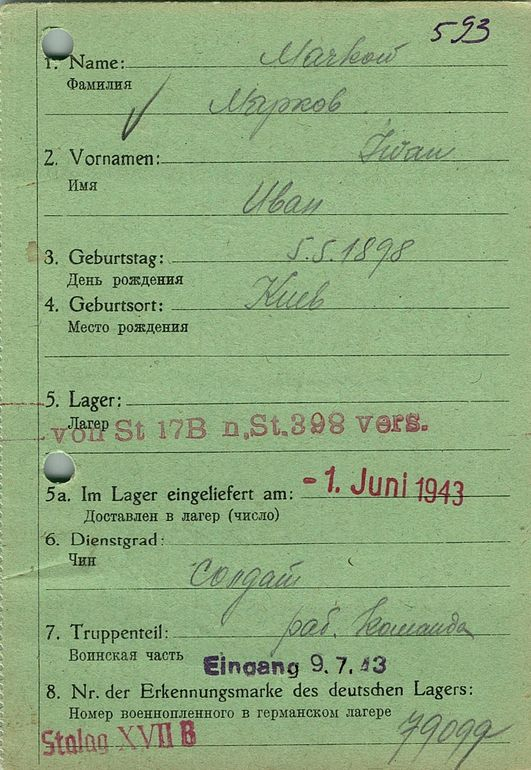 593
1. Name:
Фамилия
Мурков
2. Vornamen: Iwan
Имя
Иван
3. Geburtstag: 5.5.1898
День рождения
4. Geburtsort: Киев
Место рождения
5. Lager:
Лагер
von St 17B n. St. 398 vers.
5a. Im Lager eingeliefert am: -1. Juni 1943
Доставлен в лагер (число)
6. Dienstgrad:
Чин
Солдат
7. Truppenteil: раб. команда
Воинская часть
Eingang 9.7.43
8. Nr. der Erkennungsmarke des deutschen Lagers:
Номер военнопленного в германском лагере
Stalag XVII B